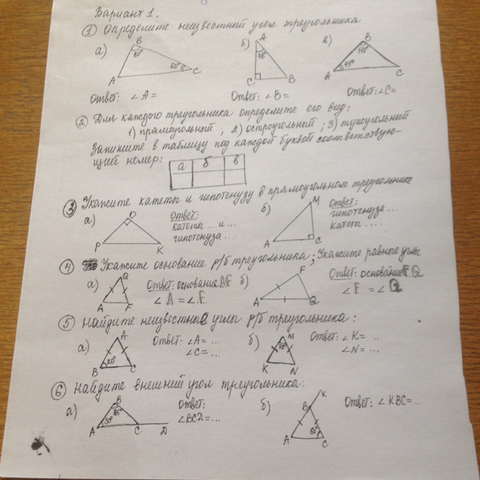 Вариант 1.
① Определите неизвестный угол треугольника.
а) б) в)
B A B
A C C B A C
Ответ: ∠A = Ответ: ∠B = Ответ: ∠C =
② Для каждого треугольника определите его вид:
1) прямоугольный, 2) остроугольный; 3) тупоугольный
Запишите в таблицу под каждой буквой соответствую-
щий номер:
а б в
③ Укажите катеты и гипотенузу в прямоугольном треугольнике
а) O P K
Ответ:
катеты ... и ...
гипотенуза ...
б) M A C
Ответ:
гипотенуза ...
катеты ....
④ Укажите основание р/б треугольника; Укажите равные углы
а) A F
Ответ: основание AF
∠A = ∠F.
б) A F Q
Ответ: основание FQ
∠F = ∠Q
⑤ Найдите неизвестные углы р/б треугольника:
а) A B C
Ответ: ∠A = ..
∠C = ..
б) M K N
Ответ: ∠K = ..
∠N = ..
⑥ Найдите внешний угол треугольника.
а) B A C D
Ответ:
∠BCD = ..
б) K B A C
Ответ: ∠KBC = ..